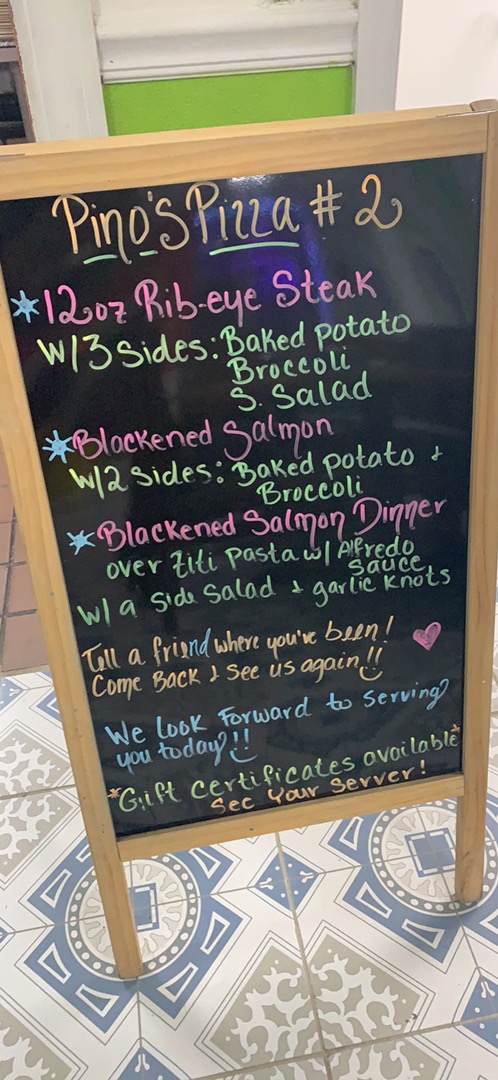 Pino's Pizza # 2
*12oz Rib-eye Steak
W/3 Sides: Baked potato
Broccoli
S. Salad
*Blackened Salmon
W/2 Sides: Baked potato +
Broccoli
*Blackened Salmon Dinner
over Ziti Pasta w/ Alfredo
Sauce
W/ a Side Salad + garlic Knots
Tell a friend where you've been!
Come Back & See us again!!
We look Forward to serving
you today!!
*Gift certificates available*
See Your Server!